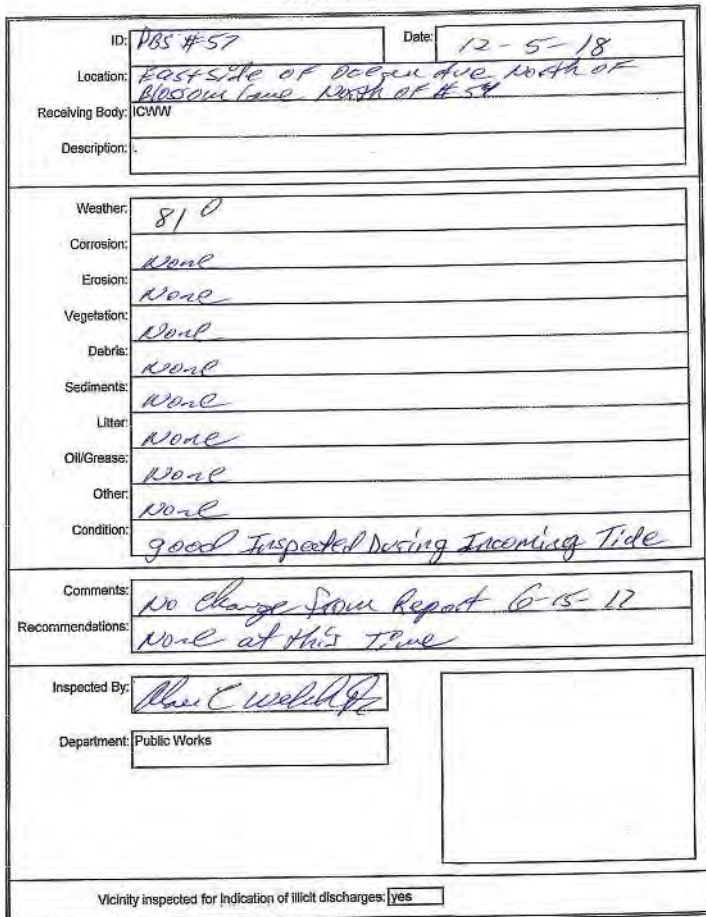 ID: PBS #57 Date: 12-5-18
Location: East Side of Ocean Ave North of
Blossom Lane North of #54
Receiving Body: ICWW
Description: .
Weather: 81°
Corrosion: None
Erosion: None
Vegetation: None
Debris: None
Sediments: None
Litter: None
Oil/Grease: None
Other: None
Condition: good Inspected During Incoming Tide
Comments: No Change from Report 6-15-17
Recommendations: None at this Time
Inspected By:
Department: Public Works
Vicinity inspected for indication of illicit discharges: yes